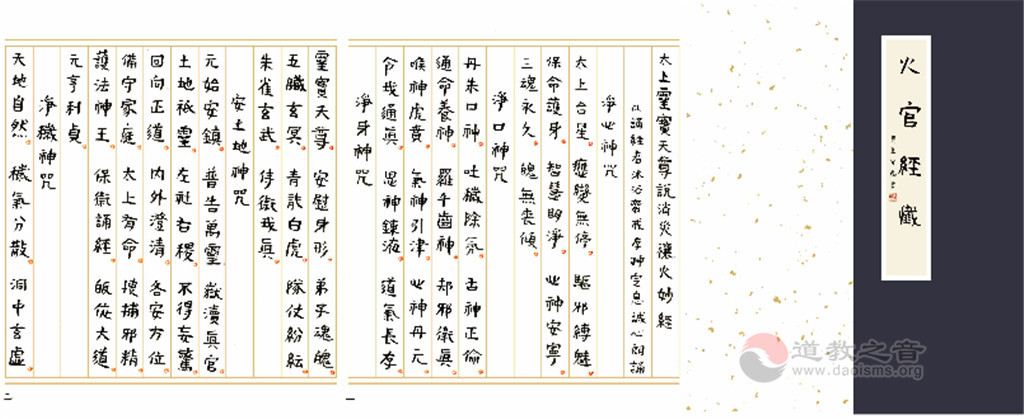 火官經懺
太上靈寶天尊說消災禳火妙經
凡誦經者沐浴齋戒存神定息誠心朗誦
淨心神咒
太上台星 應變無停 驅邪縛魅
保命護身 智慧明淨 心神安寧
三魂永久 魄無喪傾
淨口神咒
丹朱口神 吐穢除氛 舌神正倫
通命養神 羅千齒神 却邪衛真
喉神虎賁 氣神引津 心神丹元
令我通真 思神鍊液 道氣長存
淨身神咒
一
靈寶天尊 安慰身形 弟子魂魄
五臟玄冥 青龍白虎 隊仗紛紜
朱雀玄武 侍衛我真
安土地神咒
元始安鎮 普告萬靈 嶽瀆真官
土地祇靈 左社右稷 不得妄驚
回向正道 內外澄清 各安方位
備守家庭 太上有命 搜捕邪精
護法神王 保衛誦經 皈依大道
元亨利貞
淨穢神咒
天地自然 穢氣分散 洞中玄虛
二
道教之音
www.daoisms.org